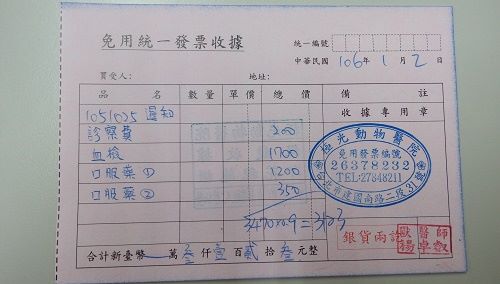 免用統一發票收據
統一編號
中華民國106年1月2日
買受人: 地址:
品名 數量 單價 總價 備註
1051025 收據專用章
診察費 200
血檢 1700
口服藥① 1200
口服藥② 350
極光動物醫院
免用發票編號
26378232
TEL:27848211
3470x0.9=3103
銀貨兩訖
合計新臺幣 萬叁仟壹百貳拾叁元整